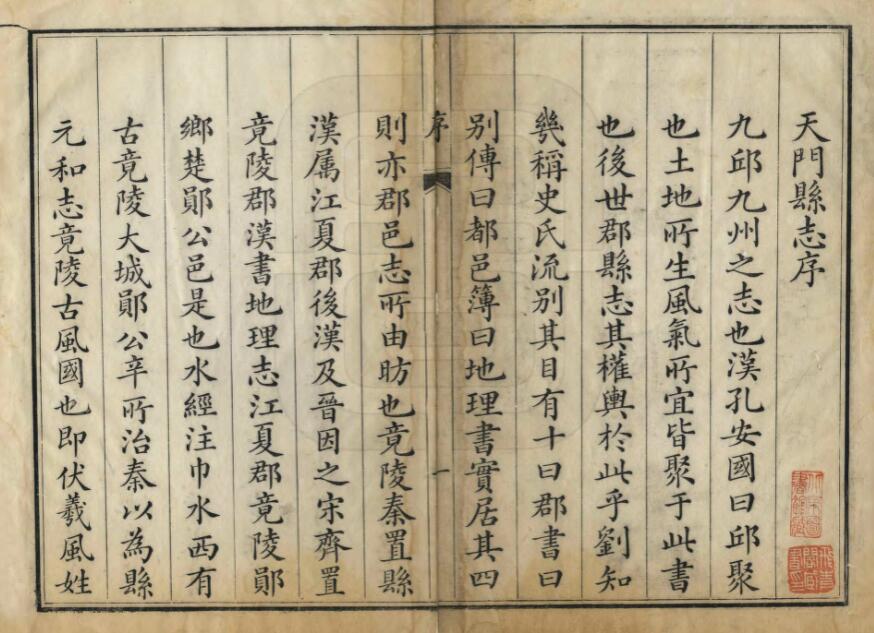 天門縣志序
九邱九州之志也漢孔安國曰邱聚
也土地所生風氣所宜皆聚于此書
也後世郡縣志其權輿於此乎劉知
幾稱史氏流別其目有十曰郡書曰
別傳曰都邑簿曰地理書實居其四
序
一
則亦郡邑志所由昉也竟陵秦置縣
漢属江夏郡後漢及晉因之宋齊置
竟陵郡漢書地理志江夏郡竟陵鄖
鄉楚鄖公邑是也水經注巾水西有
古竟陵大城鄖公辛所治秦以為縣
元和志竟陵古風國也即伏羲風姓